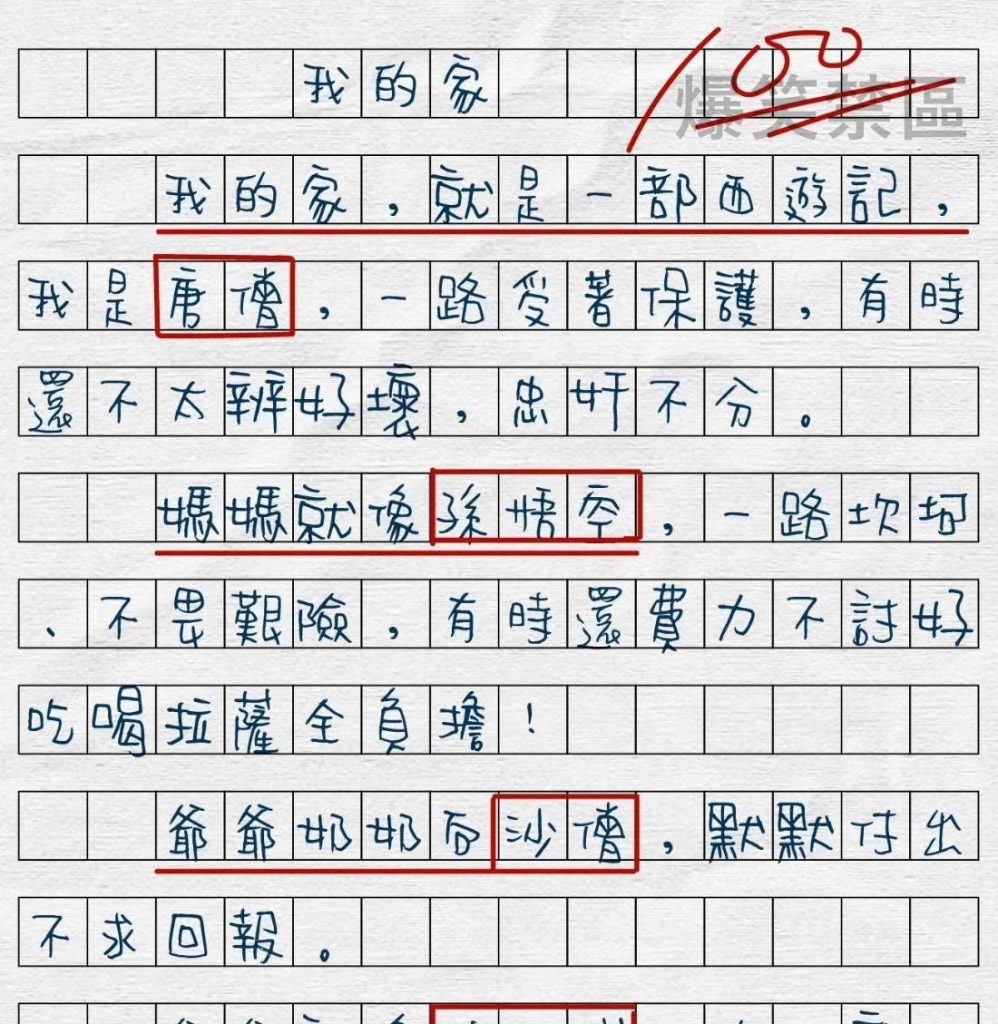 100
爆笑禁區
我的家
我的家，就是一部西遊記，
我是唐僧，一路受著保護，有時
還不太辨好壞，忠奸不分。
媽媽就像孫悟空，一路坎坷
、不畏艱險，有時還費力不討好
吃喝拉薩全負擔！
爺爺奶奶同沙僧，默默付出
不求回報。